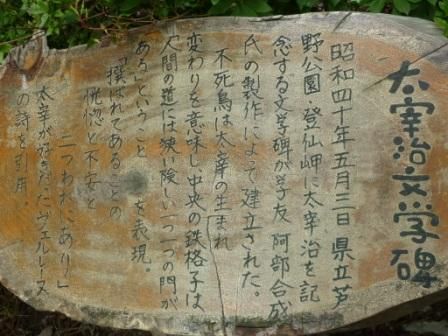 太宰治文学碑
昭和四十年五月三日 県立芦
野公園 登仙岬に太宰治を記
念する文学碑が学友 阿部合成
氏の製作によって建立された。
不死鳥は太宰の生まれ
変わりを意味し中央の鉄格子は
人間の道には狭い険しい一つの門が
ある」ということ を表現。
「撰ばれてあることの
恍惚と不安と
二つわれにあり」
太宰が好きだったヴェルレーヌ
の詩を引用。